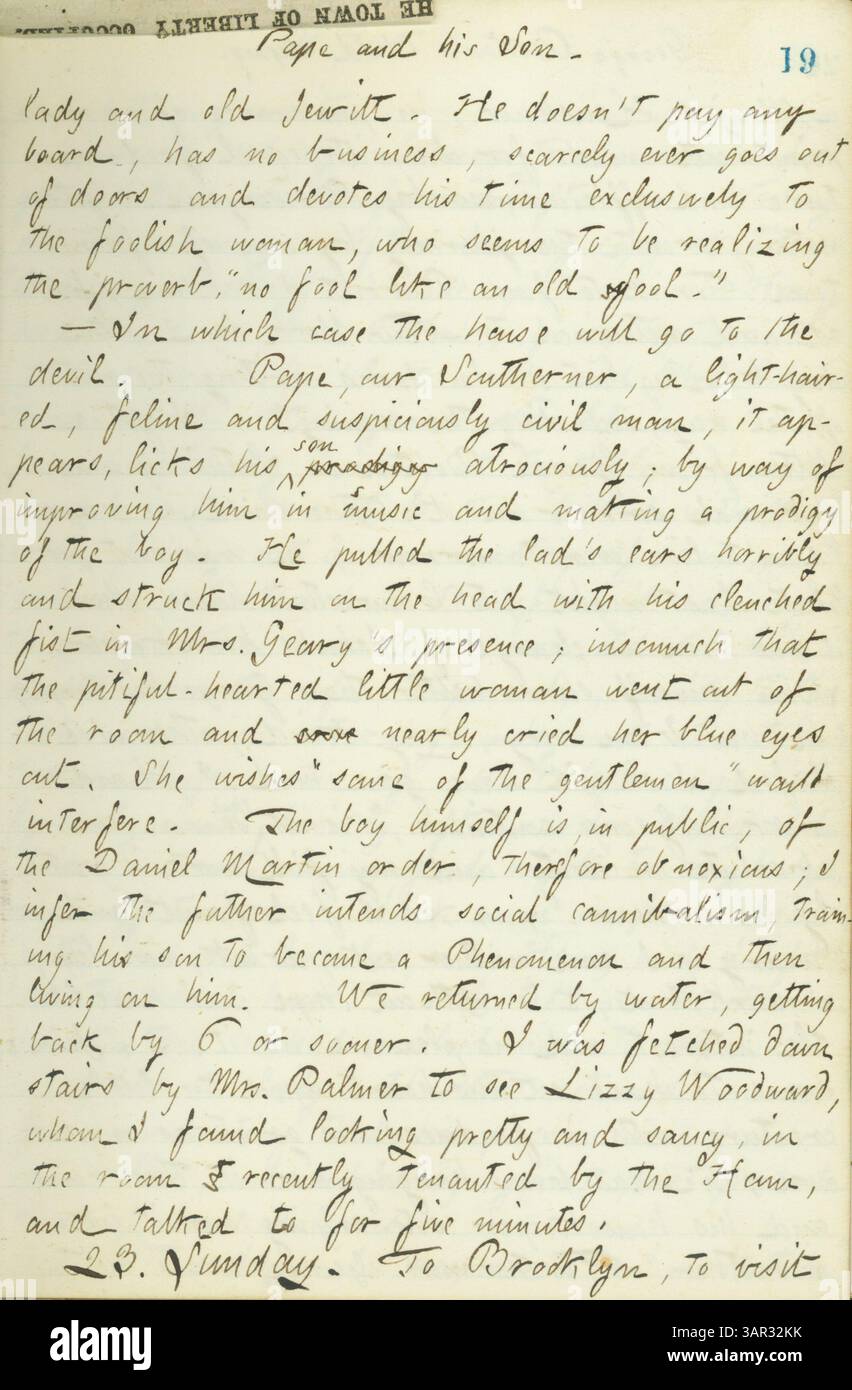 HE TOWN OF LIBERTY OCCUPIED.
Pape and his Son.
19
lady and old Jewitt. He doesn't pay any
board, has no business, scarcely ever goes out
of doors and devotes his time exclusively to
the foolish woman, who seems to be realizing
the proverb, "no fool like an old fool."
— In which case the house will go to the
devil. Pape, our Southerner, a light-hair-
ed, feline and suspiciously civil man, it ap-
pears, licks his son prodigy atrociously; by way of
improving him in music and making a prodigy
of the boy. He pulled the lad's ears horribly
and struck him on the head with his clenched
fist in Mrs. Geary's presence; insomuch that
the pitiful-hearted little woman went out of
the room and nearly cried her blue eyes
out. She wishes "some of the gentlemen" would
interfere. The boy himself is, in public, of
the Daniel Martin order, therefore obnoxious; I
infer the father intends social cannibalism, train-
ing his son to become a Phenomenon and then
living on him. We returned by water, getting
back by 6 or sooner. I was fetched down
stairs by Mrs. Palmer to see Lizzy Woodward,
whom I found looking pretty and saucy, in
the room recently tenanted by the Hann,
and talked to for five minutes.
23. Sunday. To Brooklyn, to visit
alamy
Image ID: 3AR32KK
www.alamy.com